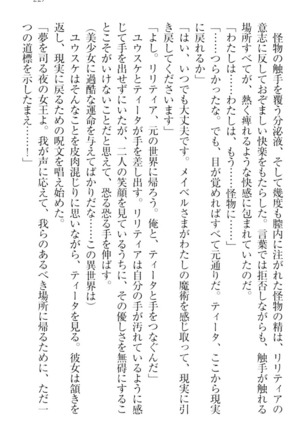 怪物の触手を覆う分泌液、そして幾度も膣内に注がれた怪物の精は、リリティアの
意志に反しておぞましい快楽をもたらした。言葉では拒否しながらも、触手が触れる
場所すべてが、熱く痺れるような快感に包まれていたのだ。
「わたしは……わたしは、もう……怪物に……」
「……つらかったな。でも、目が覚めればすべて元通りだ。ティータ、ここから現実
に戻れるか」
「はい、いつでも大丈夫です。メイベルさまがわたしの魔術を感じ取って、現実に引
き戻してくれます」
「よし。リリティア、元の世界に帰ろう。俺と、ティータと手をつなぐんだ」
ユウスケとティータが手を差し出す。リリティアは自分の手が汚れているように感
じて手を出せずにいたが、二人の笑顔を見ているうちに、その優しさを無碍にするこ
とがいけないことだと思えて、恐る恐る手を伸ばす。
（美少女に過酷な運命を与えてばかりだな……この異世界は）
ユウスケはそんなことを皮肉混じりに思いながら、ティータを見る。彼女は頷きを
返し、現実に戻るための呪文を唱え始めた。
「夢を司る夜の女王よ。我が声に応えて、我らのあるべき場所に帰るために、ただ一
つの道標を示したまえ……！」